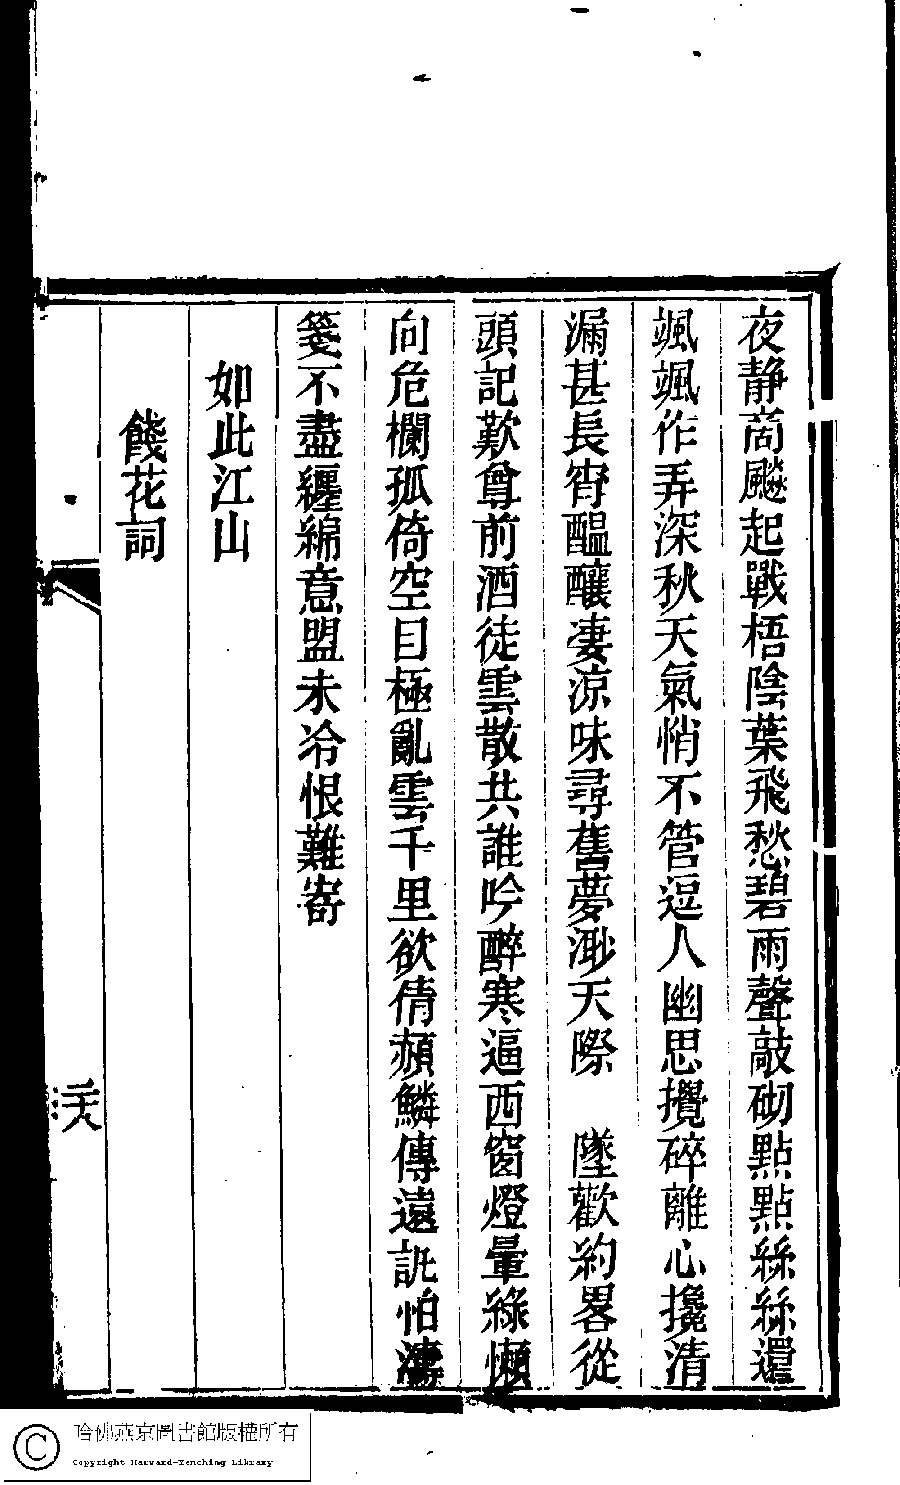 夜静商飈起戰梧陰葉飛愁碧雨聲敲砌點點絲絲還
颯颯作弄深秋天氣悄不管逗人幽思攪碎離心攙清
漏甚長宵醞釀凄涼味尋舊夢渺天際　墜歡約畧從
頭記歎尊前酒徒雲散共誰吟醉寒逼西窗燈暈綠懶
向危欄孤倚空目極亂雲千里欲倩頳鱗傳遠訊怕濤
箋不盡纏綿意盟未冷恨難寄
如此江山
餞花詞
哈佛燕京圖書館版權所有
Copyright Harvard-Yenching Library